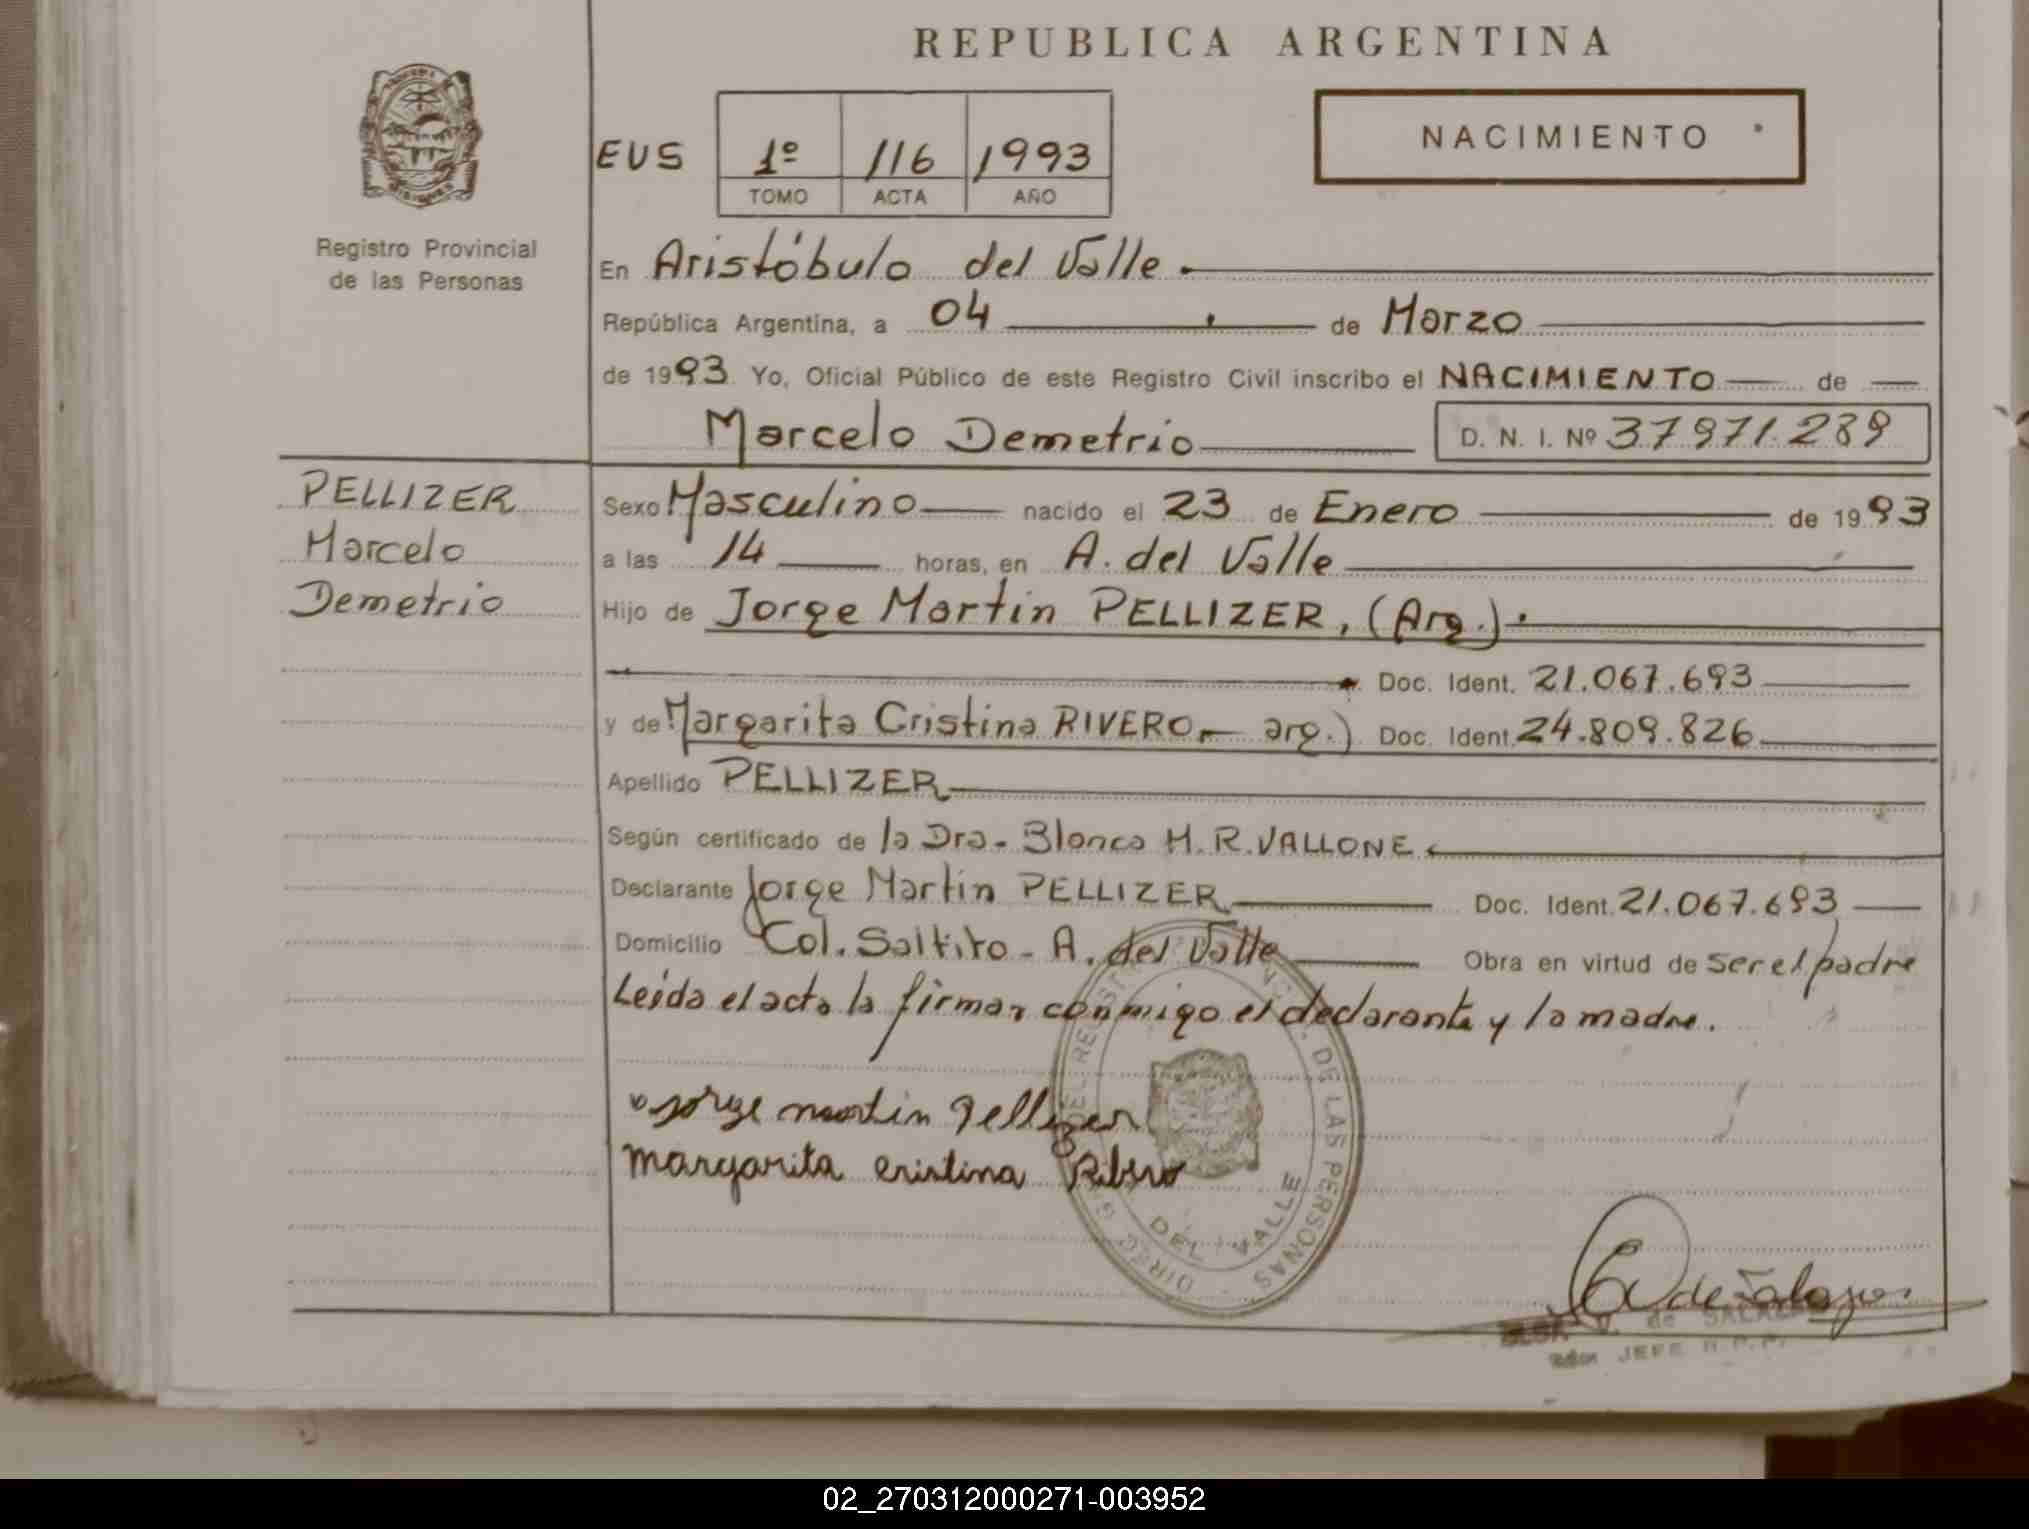 REPUBLICA ARGENTINA
NACIMIENTO
EUS 1º 116 1993
TOMO ACTA AÑO
Registro Provincial
de las Personas
En Aristóbulo del Valle.
República Argentina, a 04 de Marzo
de 1993 Yo, Oficial Público de este Registro Civil inscribo el NACIMIENTO de
Marcelo Demetrio D. N. I. Nº 37971.289
PELLIZER
Marcelo
Demetrio
Sexo Masculino nacido el 23 de Enero de 1993
a las 14 horas, en A. del Valle
Hijo de Jorge Martin PELLIZER, (Arg.).
Doc. Ident. 21.067.693
y de Margarita Cristina RIVERO arg.) Doc. Ident. 24.809.826
Apellido PELLIZER
Según certificado de la Dra. Blanca M. R. VALLONE.
Declarante Jorge Martin PELLIZER Doc. Ident. 21.067.693
Domicilio Col. Saltito - A. del Valle Obra en virtud de ser el padre
Leída el acta la firman conmigo el declarante y la madre.
Jorge martin Pellizer
margarita cristina Ribero
DE LAS PERSONAS
DEL VALLE
de Salazar
V. de
JEFE R.P.P.
02_270312000271-003952